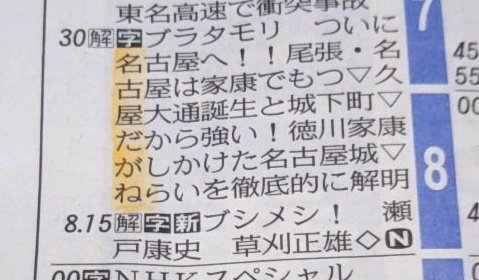 東名高速で衝突事故
7
30解字ブラタモリ　ついに
名古屋へ！！尾張・名
古屋は家康でもつ▽久
屋大通誕生と城下町▽
だから強い！徳川家康
がしかけた名古屋城▽
ねらいを徹底的に解明
8
8.15解字新ブシメシ！　瀬
戸康史　草刈正雄◇N
00字NHKスペシャル
45
55
00